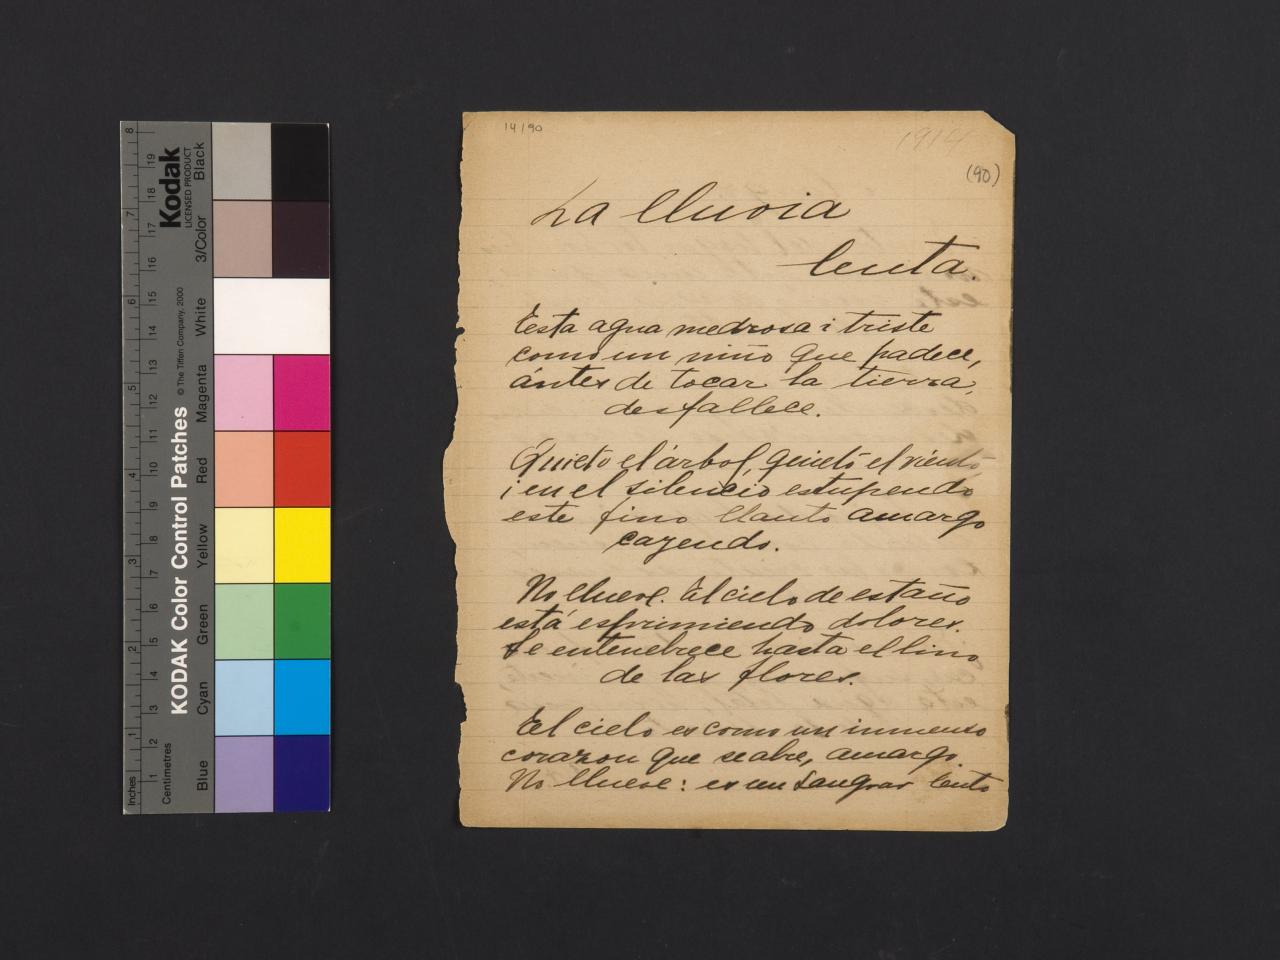 Inches
Centimetres
8
7
6
5
4
3
2
1
19
18
17
16
15
14
13
12
11
10
9
8
7
6
5
4
3
2
1
KODAK Color Control Patches
© The Tiffen Company, 2000
Kodak
LICENSED PRODUCT
Blue
Cyan
Green
Yellow
Red
Magenta
White
3/Color
Black
14190
1914
(90)
La lluvia
lenta.
Esta agua medrosa i triste
como un niño que padece,
ántes de tocar la tierra,
desfallece.
Quieto el árbol, quieto el viento
i en el silencio estupendo
este fino llanto amargo
cayendo.
No llueve. El cielo de estaño
está esprimiendo dolores.
Se entenebrece hasta el lino
de las flores.
El cielo es como un inmenso
corazon que se abre, amargo.
No llueve: es un sangrar lento